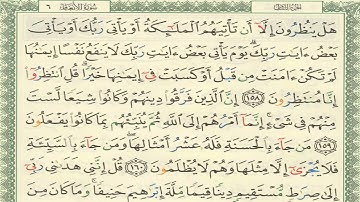 سورة الأنعام ٦
هَلْ يَنظُرُونَ إِلَّا أَن تَأْتِيَهُمُ الْمَلَٰٓئِكَةُ أَوْ يَأْتِيَ رَبُّكَ أَوْ يَأْتِيَ
بَعْضُ ءَايَٰتِ رَبِّكَ يَوْمَ يَأْتِي بَعْضُ ءَايَٰتِ رَبِّكَ لَا يَنفَعُ نَفْسًا إِيمَٰنُهَا
لَمْ تَكُنْ ءَامَنَتْ مِن قَبْلُ أَوْ كَسَبَتْ فِىٓ إِيمَٰنِهَا خَيْرًا قُلِ انتَظِرُوٓا
إِنَّا مُنتَظِرُونَ ١٥٨ إِنَّ الَّذِينَ فَرَّقُوا دِينَهُمْ وَكَانُوا شِيَعًا لَّسْتَ
مِنْهُمْ فِى شَىْءٍ إِنَّمَآ أَمْرُهُمْ إِلَى اللَّهِ ثُمَّ يُنَبِّئُهُم بِمَا كَانُوا يَفْعَلُونَ
١٥٩ مَن جَآءَ بِالْحَسَنَةِ فَلَهُ عَشْرُ أَمْثَالِهَا وَمَن جَآءَ بِالسَّيِّئَةِ
فَلَا يُجْزَىٰٓ إِلَّا مِثْلَهَا وَهُمْ لَا يُظْلَمُونَ ١٦٠ قُلْ إِنَّنِى هَدَىٰنِى رَبِّىٓ
إِلَىٰ صِرَٰطٍ مُّسْتَقِيمٍ دِينًا قِيَمًا مِّلَّةَ إِبْرَٰهِيمَ حَنِيفًا وَمَا كَانَ مِنَ